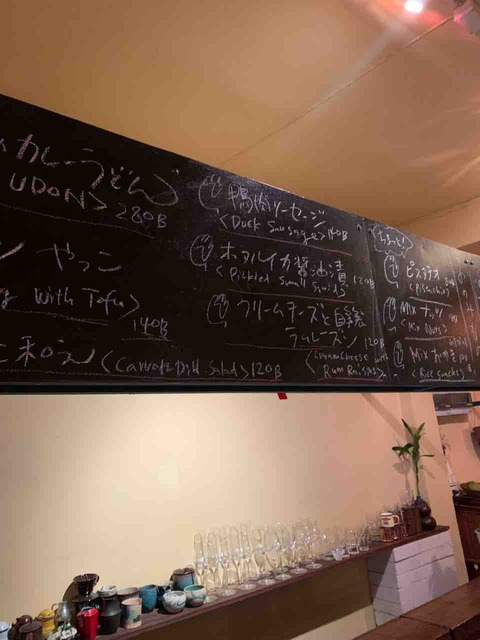 カレーうどん
UDON> 280B
やっこ
With Tofu>
140B
<Carrot Dill Salad> 120B
鴨肉ソーセージ
<Duck Sausage> 140B
ホタルイカ醤油漬
<Pickled Small Squid> 120B
クリームチーズと自家製
ラムレーズン 120B
<Creamcheese with
Rum Raisins>
ピスタチオ
<Pistachio>
Mix ナッツ
<Mix Nuts>
Mix
<Rice Snacks>